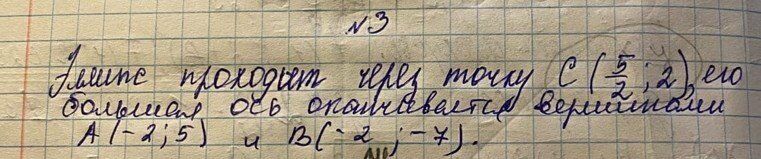 №3
Эллипс проходит через точку C (5/2; 2), его
большая ось оканчивается вершинами
A(-2; 5) и B(-2; -7).